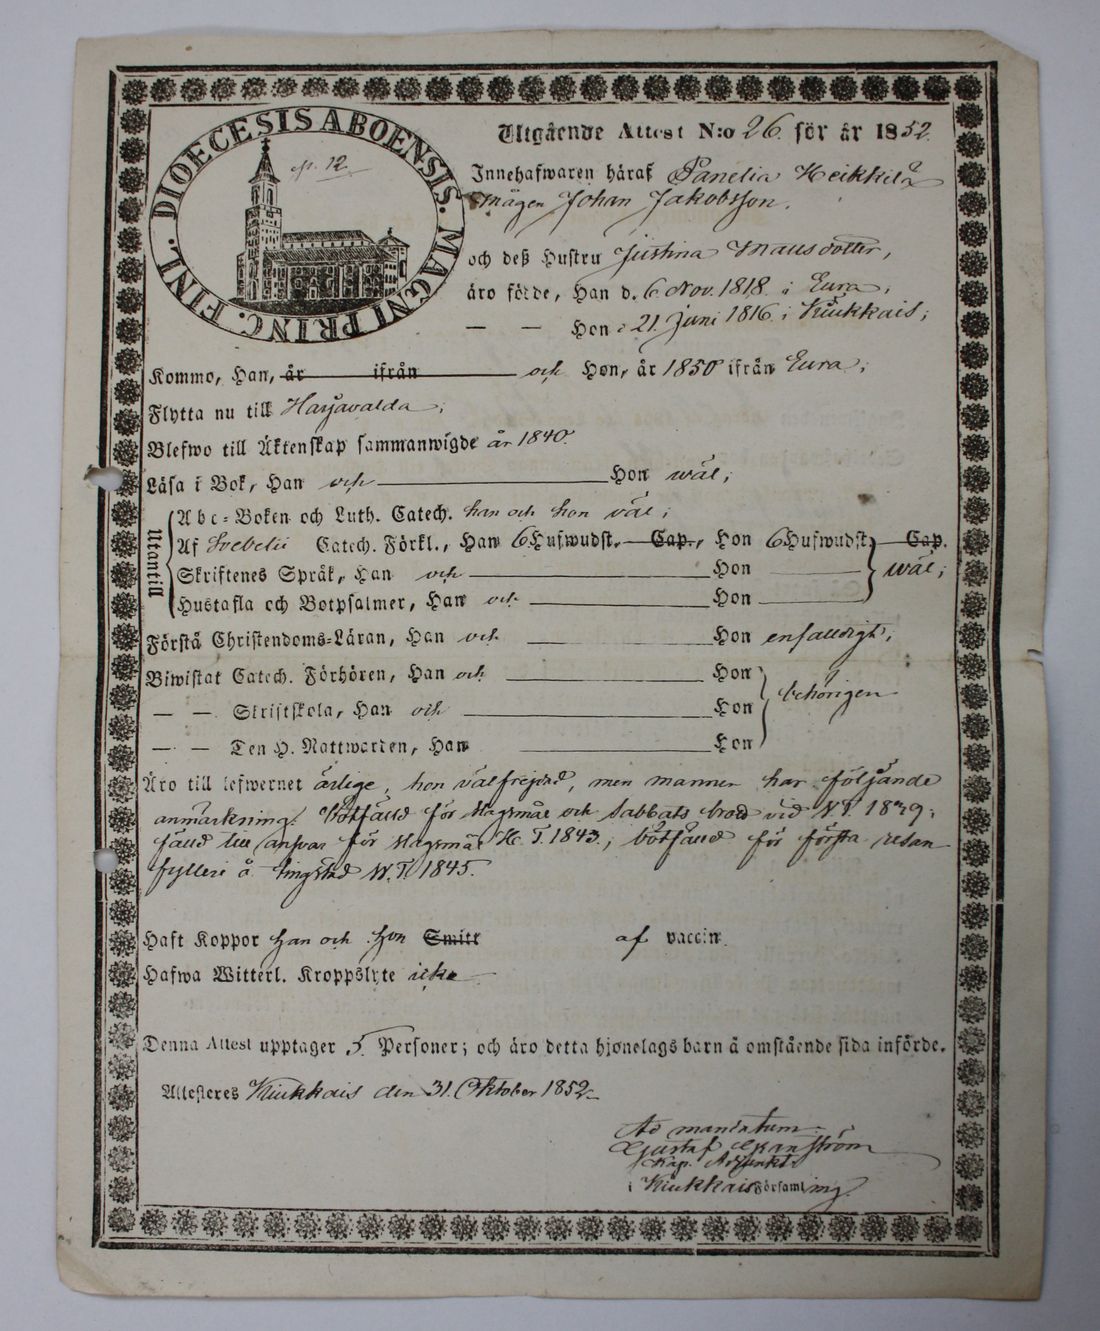 DIOECESIS ABOENSIS. MAGNI PRINC. FINL.
p. 12.
Utgående Attest N:o 26. för år 1852.
Innehafwaren häraf Panelia Heikkilä
mågen Johan Jakobsson.
och deß Hustru Justina Mansdotter,
äro födde, Han d. 6 Nov. 1818. i Eura,
— — Hon d 21. Juni 1816. i Kiukkais;
Kommo, Han, år ifrån och Hon, år 1850 ifrån Eura;
Flytta nu till Harjavalda;
Blefwo till Äktenskap sammanwigde år 1840.
Läsa i Bok, Han och Hon wäl;
Utantill
Abc-Boken och Luth. Catech. han och hon väl;
Af Svebelii Catech. Förkl., Han 6 Hufwudst. Cap., Hon 6 Hufwudst. Cap.
Skriftenes Språk, Han och Hon wäl;
Hustafla och Botpsalmer, Han och Hon
Förstå Christendoms-Läran, Han och Hon enfaldigt;
Biwistat Catech. Förhören, Han och Hon
— — Skriftskola, Han och Hon behörigen
— — Ten H. Nattwarden, Han Hon
Äro till lefwernet ärlige, hon välfrejdad, men mannen har följande
anmärkning: Bötfälld för Slagsmål och Sabbats brott vid W. T. 1839;
fälld till ansvar för Slagsmål H. T. 1843.; bötfälld för första resan
fylleri å Tingstad W. T. 1845.
Haft Koppor han och hon Smitt af vaccin.
Hafwa Witterl. Kroppslyte icke
Denna Attest upptager 5. Personer; och äro detta hjonelags barn å omstående sida införde.
Attesteres Kiukkais den 31. Oktober 1852.
Ad mandatum:
Gustaf Granström
Kap. Adjunkt
i Kiukkais Församling.